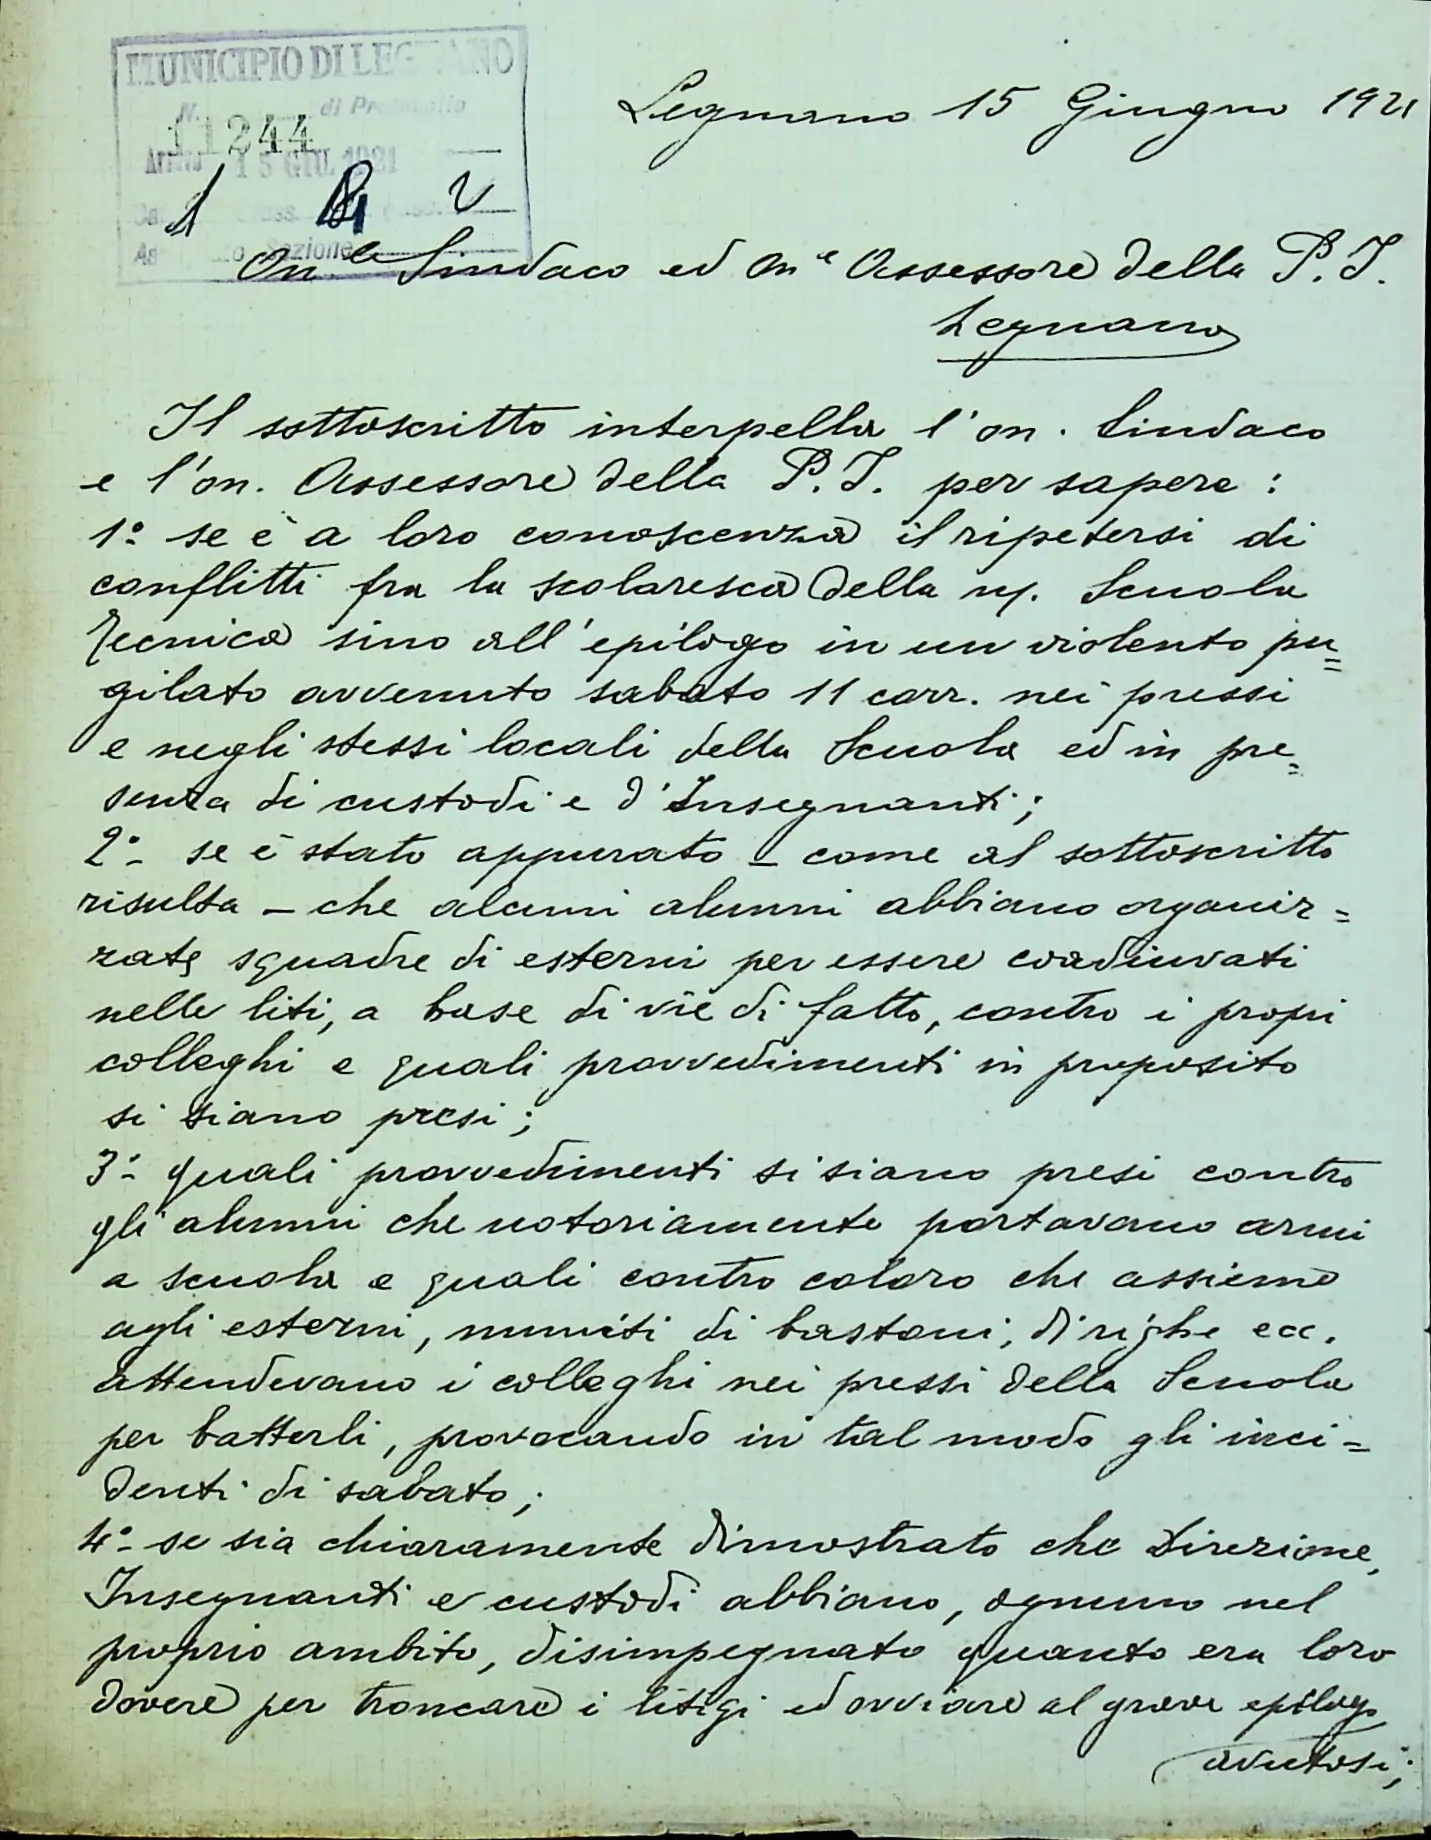 MUNICIPIO DI LEGNANO
N. di Protocollo
11244
15 GIU. 1921
Legnano 15 Giugno 1921
On.le Sindaco ed On.e Assessore della P. I.
Legnano
Il sottoscritto interpella l'on. Sindaco
e l'on. Assessore della P. I. per sapere :
1º se è a loro conoscenza il ripetersi di
conflitti fra la scolaresca della Scuola
Tecnica sino all'epilogo in un violento pu=
gilato avvenuto sabato 11 corr. nei pressi
e negli stessi locali della Scuola ed in pre=
senza di custodi e d'Insegnanti ;
2º- se è stato appurato - come al sottoscritto
risulta - che alcuni alunni abbiano organiz=
zate squadre di esterni per essere coadiuvati
nelle liti, a base di vie di fatto, contro i propri
colleghi e quali provvedimenti in proposito
si siano presi ;
3º- quali provvedimenti si siano presi contro
gli alunni che notoriamente portavano armi
a scuola e quali contro coloro che assieme
agli esterni, muniti di bastoni, di righe ecc.
attendevano i colleghi nei pressi della Scuola
per batterli, provocando in tal modo gli inci=
denti di sabato ;
4º- se sia chiaramente dimostrato che Direzione,
Insegnanti e custodi abbiano, ognuno nel
proprio ambito, disimpegnato quanto era loro
dovere per troncare i litigi ed ovviare al grave epilogo
avutosi ;